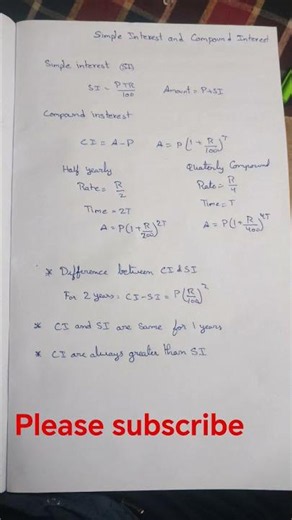 Simple Interest and Compound Interest
Simple interest (SI)
SI = PTR/100 Amount = P+SI
Compound insterest
CI = A-P A = P(1+R/100)^T
Half yearly Quaterly Compound
Rate = R/2 Rate = R/4
Time = 2T Time = T
A = P(1+R/200)^2T A = P(1+R/400)^4T
* Difference between CI & SI
For 2 years: CI-SI = P(R/100)^2
* CI and SI are same for 1 years
* CI are always greater than SI
Please subscribe